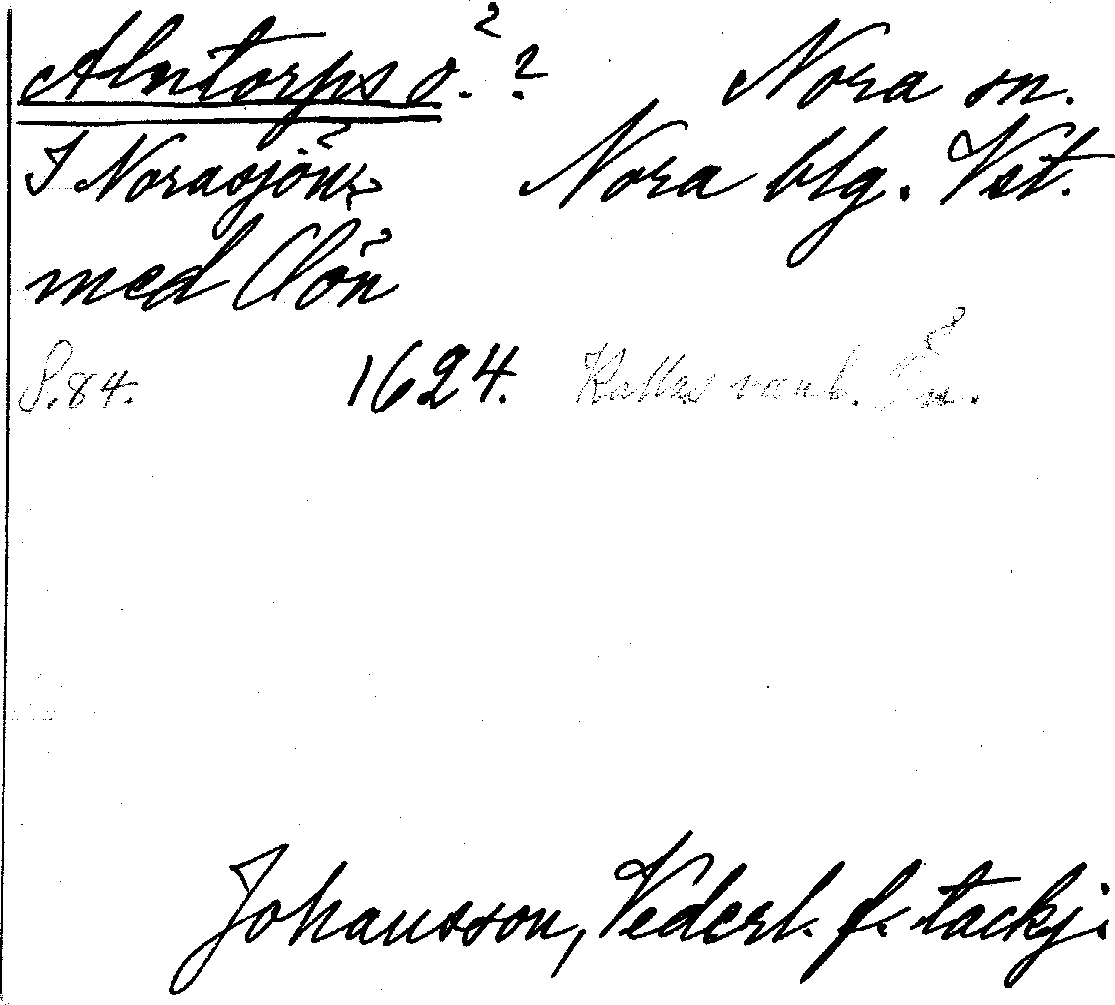 Alntorps ö. ? Nora sn.
I Norasjön, Nora blg. Vst.
med Öön
S. 84. 1624. Kallas vanl. Ön.
Johansson, Vederl. f. tackj.